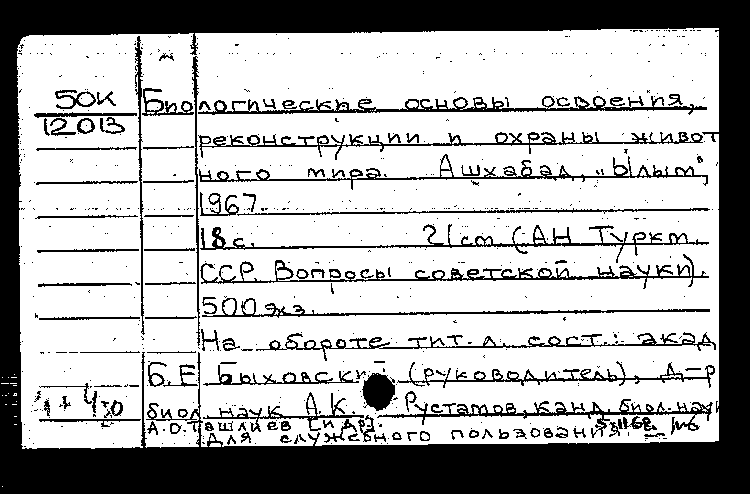 50К Биологические основы освоения,
12013
реконструкции и охраны живот
ного мира. Ашхабад, „Ылым",
1967.
18 с. 21 cm (АН Туркм.
ССР. Вопросы советской науки).
500 экз.
На обороте тит. л. сост.: акад
Б. Е Быховский (руководитель), д-р
биол. наук А.К. Рустамов, канд. биол. наук
А.О.Ташлиев [и др].
Для служебного пользования